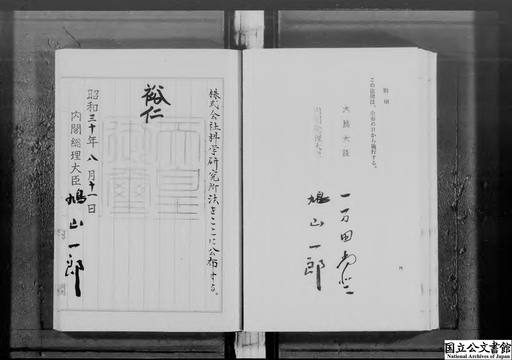 附則
この法律は、公布の日から施行する。
大蔵大臣
一万田尚登
鳩山一郎
株式会社科学研究所法をここに公布する。
裕仁
昭和三十年八月十一日
内閣総理大臣
鳩山一郎
国立公文書館
National Archives of Japan